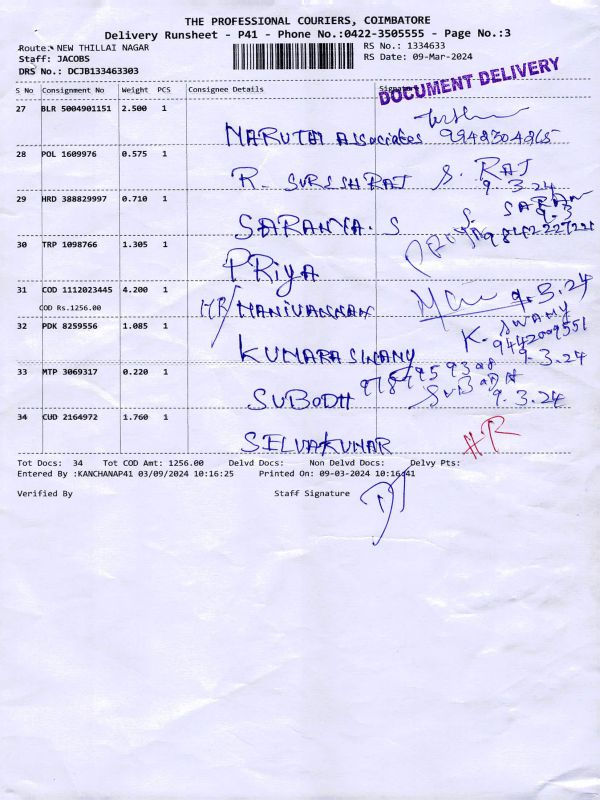 THE PROFESSIONAL COURIERS, COIMBATORE
Delivery Runsheet - P41 - Phone No.:0422-3505555 - Page No.:3
Route: NEW THILLAI NAGAR
RS No.: 1334633
Staff: JACOBS
RS Date: 09-Mar-2024
DRS No.: DCJB133463303
DOCUMENT DELIVERY
S No Consignment No Weight PCS Consignee Details Signature
27 BLR 5004901151 2.500 1
MARUTHI Associates
28 POL 1609976 0.575 1
R. SURESH RAJ S. RAJ
9.3.24
29 HRD 388829997 0.710 1
SARANYA. S S. SARAN
9.3
30 TRP 1098766 1.305 1
PRiyA Priya
31 COD 1112023445 4.200 1
COD Rs.1256.00
HR/ MANIVANNAN 9.3.24
32 PDK 8259556 1.085 1
KUMARASWAMY K. SWAMY
9442009551
9.3.24
33 MTP 3069317 0.220 1
SUBODH SUBODH
9.3.24
34 CUD 2164972 1.760 1
SELVAKUMAR HR
Tot Docs: 34 Tot COD Amt: 1256.00 Delvd Docs: Non Delvd Docs: Delvy Pts:
Entered By :KANCHANAP41 03/09/2024 10:16:25 Printed On: 09-03-2024 10:16:41
Verified By Staff Signature